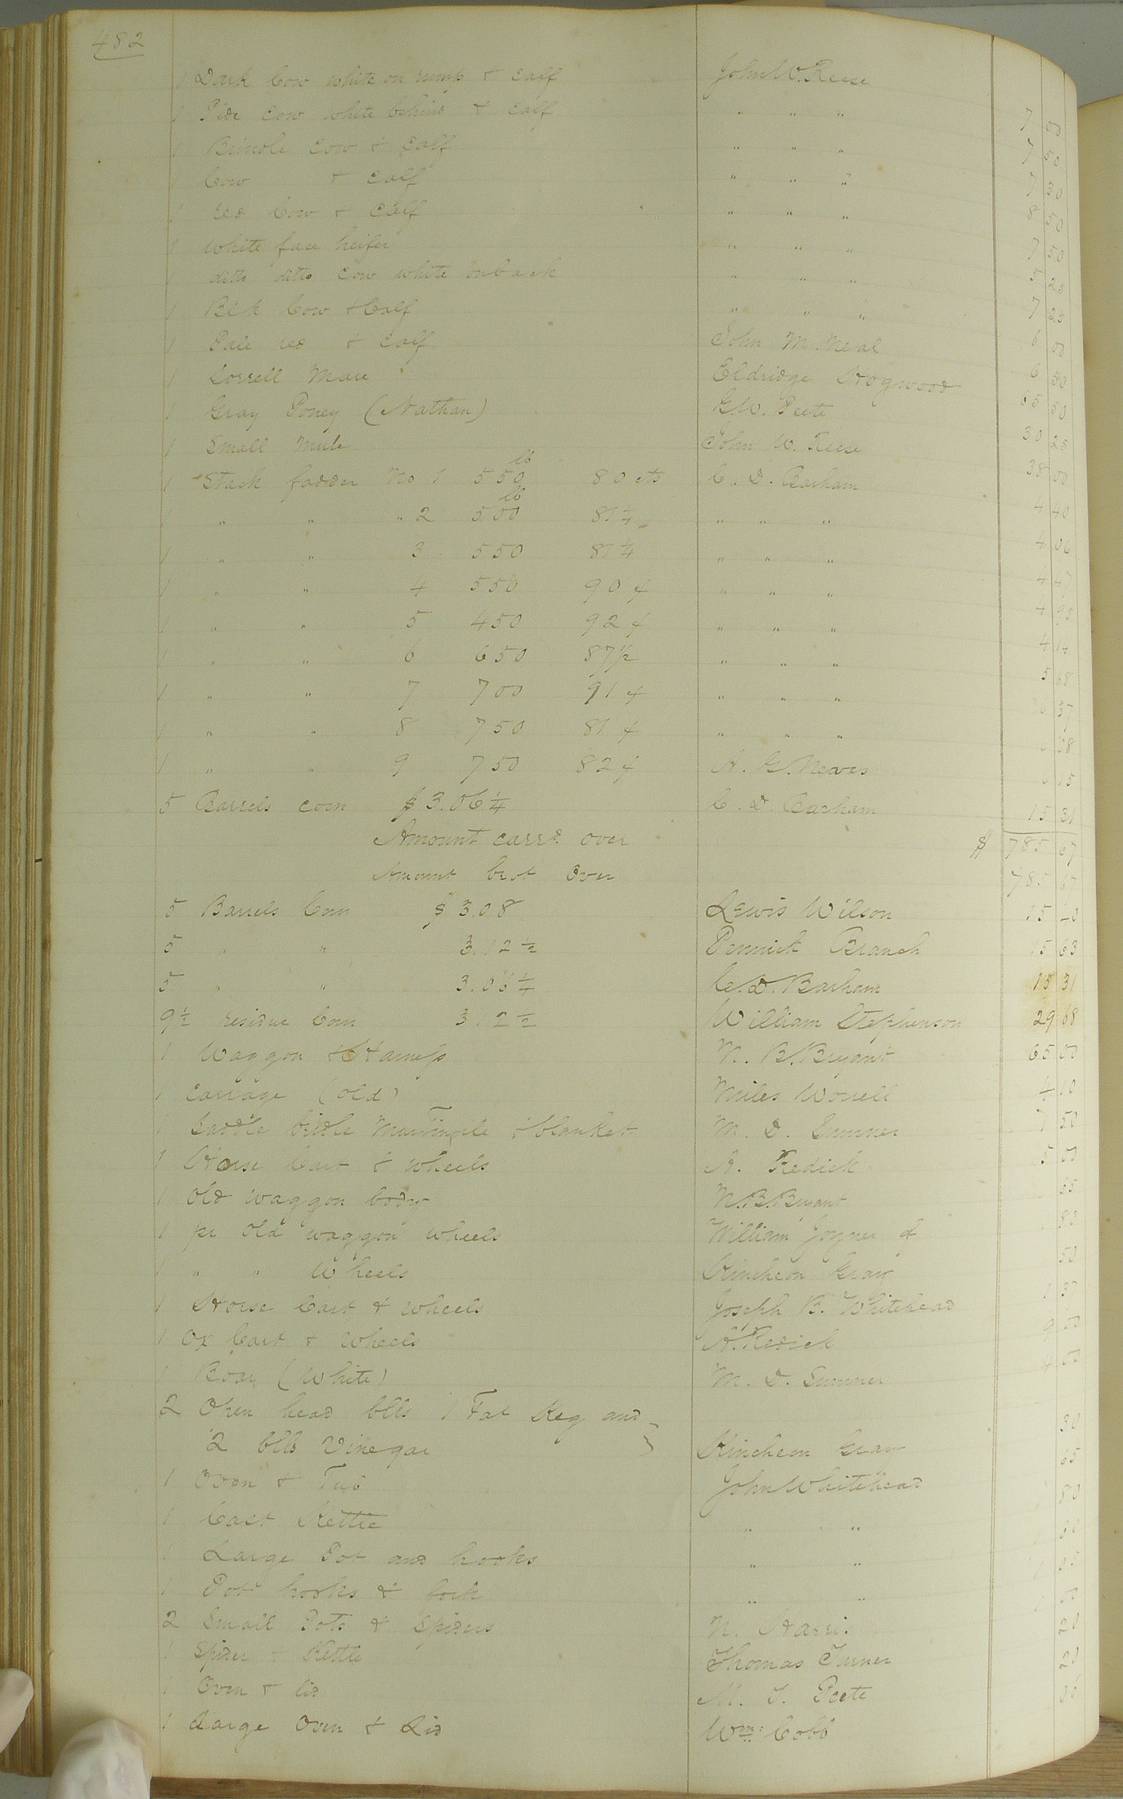 482
1 Dark Cow white on rump & calf John W. Reese
1 Pide cow white behind & calf " " " 7 00
1 Brindle cow & calf " " " 7 50
1 Cow & calf " " " 7 30
1 red Cow & calf " " " 8 50
1 white face heifer " " " 7 50
ditto ditto cow white on back " " " 5 20
1 Blk Cow & Calf " " " 7 25
1 Pale red & calf John M. Neal 6 00
1 Sorrell Mare Eldridge Hogwood 6 50
1 Gray Poney (Nathan) G.W. Peete 65 50
1 Small Mule John W. Reese 30 25
1 Stack fodder No 1 550 lb 80 cts C. D. Barham 38 00
1 " " " 2 500 lb 81¼ " " " 4 40
1 " " 3 550 81¼ " " " 4 06
1 " " 4 550 90 ¢ " " " 4 47
1 " " 5 450 92 ¢ " " " 4 95
1 " " 6 650 87½ " " " 4 14
1 " " 7 700 91 ¢ " " " 5 68
1 " " 8 750 81 ¢ " " " 37
1 " " 9 750 82 ¢ A. G. Neaves 08
5 Barrels corn $ 3.06¼ C. D. Barham 15 31
Amount carrd over $ 785 67
Amount brot over 785 67
5 Barrels Corn $ 3.08 Lewis Wilson 15 40
5 " " 3.12½ Pennick Branch 15 63
5 " " 3.06¼ C. D. Barham 15 31
9½ residue Corn 3.12½ William Stephenson 29 68
1 Waggon & Harness N. B. Bryant 65 00
1 carriage (old) Miles Worrell 10
1 Saddle bridle Martingale & blanket M. D. Sumner 7 50
1 Horse Cart & wheels A. Redick 5 00
1 Old waggon body N.B. Bryant 55
1 pr Old waggon wheels William Joyner of
1 " " Wheels Kincheon Gray 50
1 Horse Cart & wheels Joseph B. Whitehead
1 Ox Cart & wheels A. Redick
1 Boar (White) M. D. Sumner
2 Open head blls 1 Fat Keg and
2 blls Vinegar Kincheon Gray 30
1 Oven & Tub John Whitehead 65
1 Cast Kettle " " 80
1 Large Pot and hooks " "
1 Pot hooks & " "
2 Small Pots & Spiders N. Harris
1 Spider & Kettle Thomas Turner
1 Oven & lid M. T. Peete
1 Large Oven & Lid Wm. Cobb